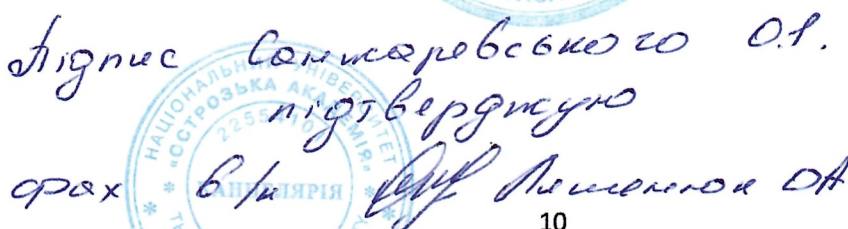 Підпис Санжаревського О.І.
підтверджую
фах в/к
10
НАЦІОНАЛЬНИЙ УНІВЕРСИТЕТ
«ОСТРОЗЬКА АКАДЕМІЯ»
КАНЦЕЛЯРІЯ